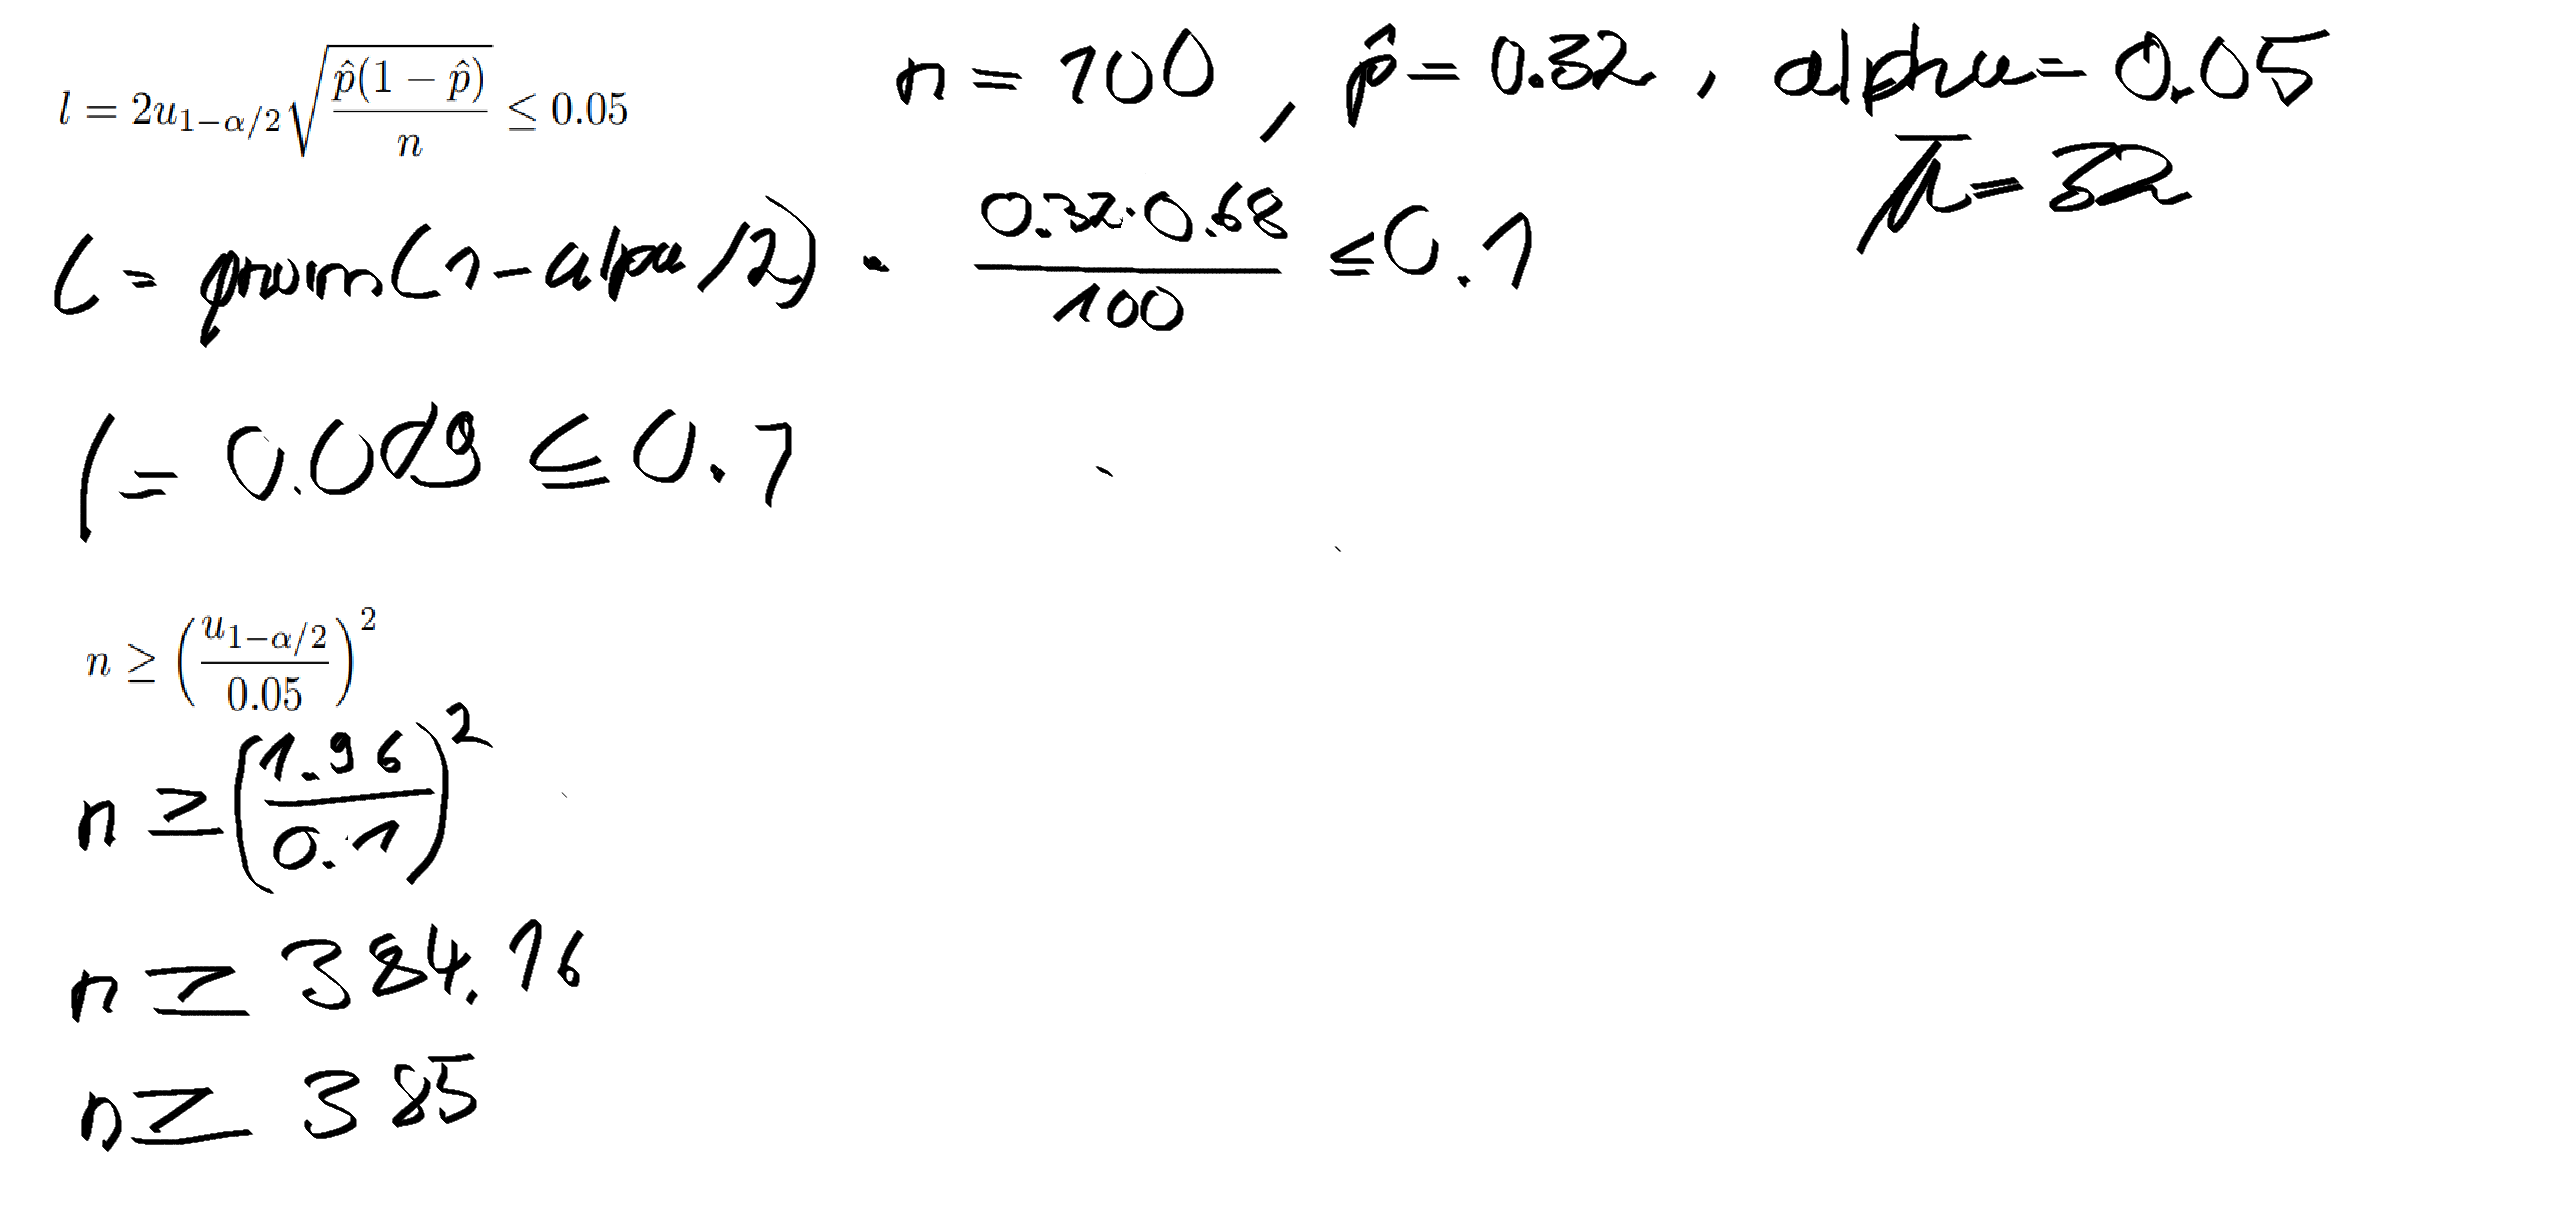 l = 2u_{1-α/2} √(p̂(1 − p̂)/n) ≤ 0.05
n = 100 , p̂ = 0.32 , alpha = 0.05
x̄ = 32
l = qnorm(1-alpa/2) · (0.32·0.68)/100 ≤ 0.1
l = 0.009 ≤ 0.1
n ≥ (u_{1-α/2}/0.05)²
n ≥ (1.96/0.1)²
n ≥ 384.16
n ≥ 385